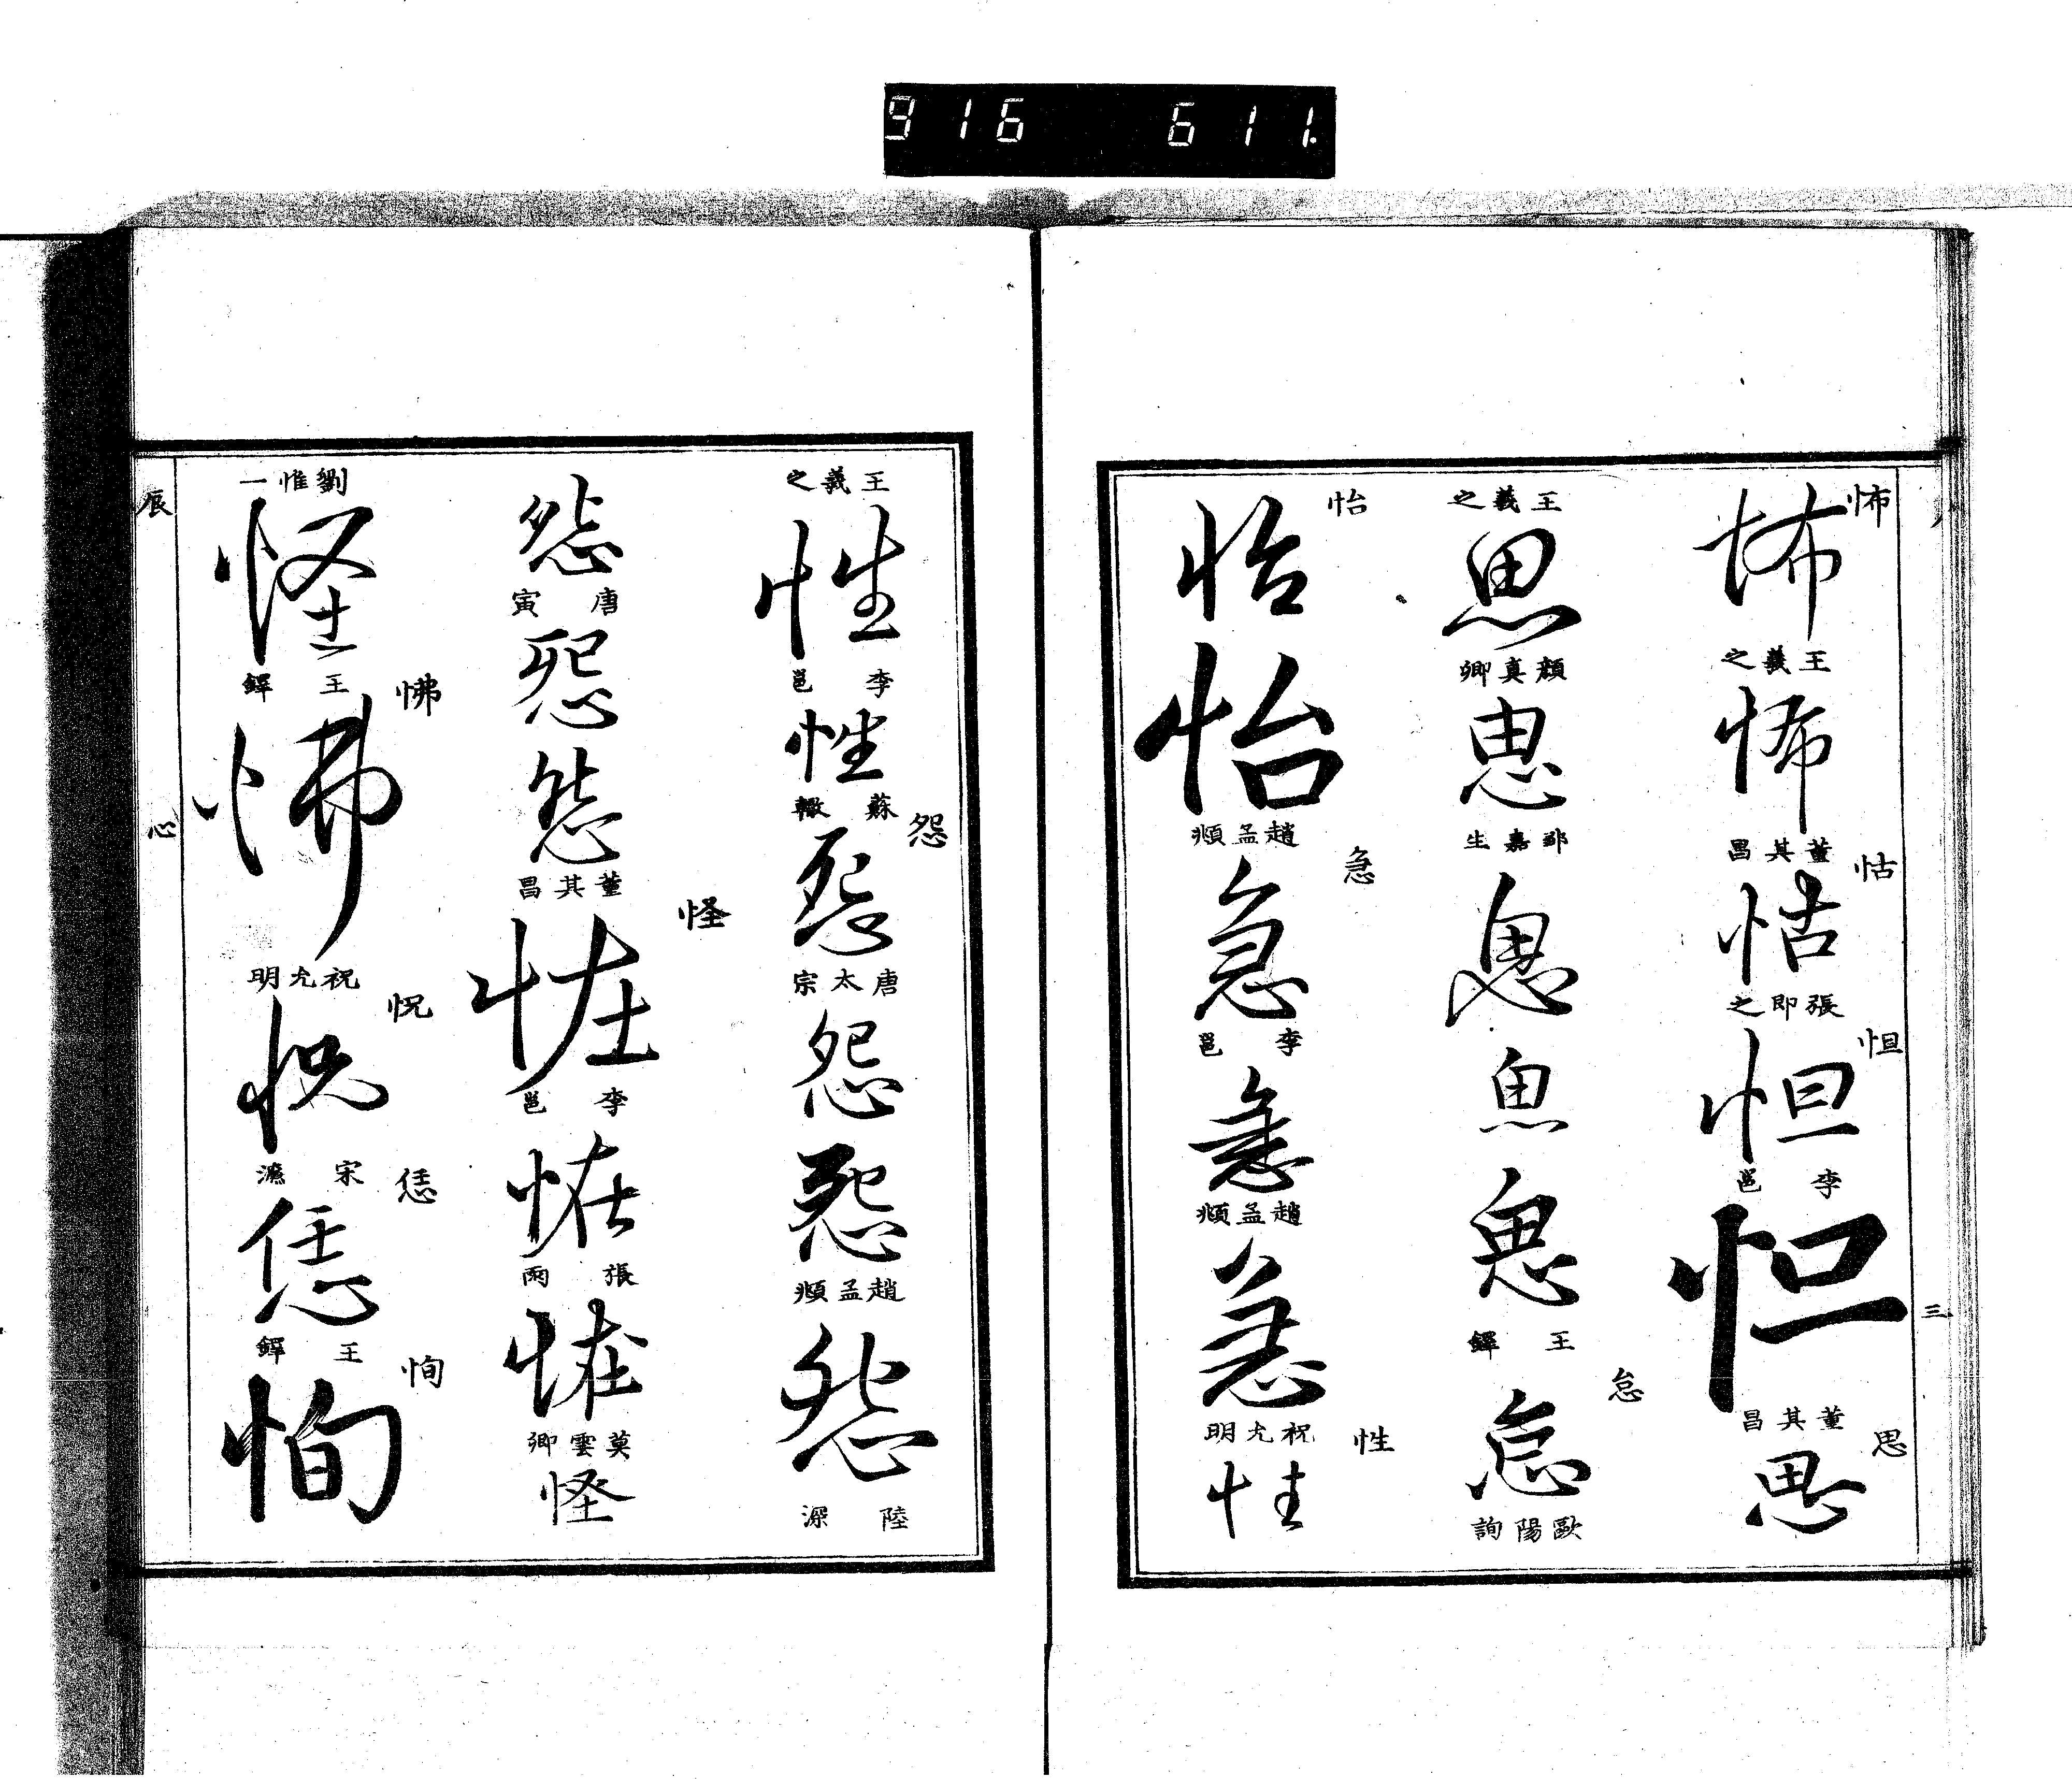 916 611.
怖
怖
王羲之
怖
董其昌
怙
怙
張即之
怛
怛
李邕
怛
董其昌
思
思
三
王羲之
思
顏真卿
思
鄒嘉生
思
思
思
王鐸
怠
怠
歐陽詢
怡
怡
怡
趙孟頫
急
急
李邕
急
趙孟頫
急
祝允明
性
性
王羲之
性
李邕
性
蘇轍
怨
怨
唐太宗
怨
怨
趙孟頫
怨
陸深
怨
唐寅
怨
怨
董其昌
怪
怪
李邕
怪
張雨
怪
莫雲卿
怪
劉惟一
怪
王鐸
怫
怫
祝允明
怳
怳
宋濂
恁
恁
王鐸
恂
恂
辰
心